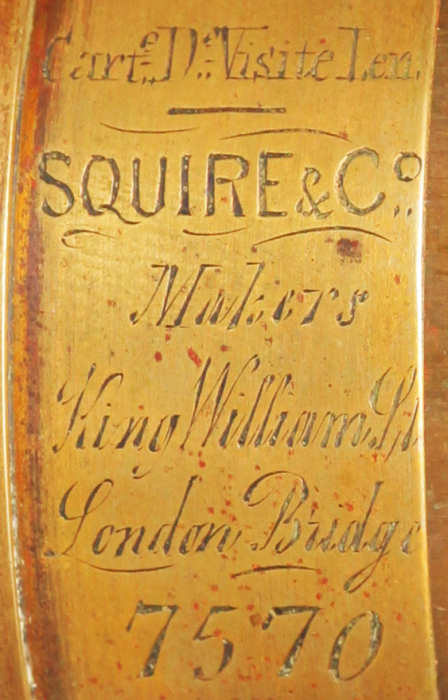 Carte De Visite Len
SQUIRE & Co.
Makers
King William St
London Bridge
7570